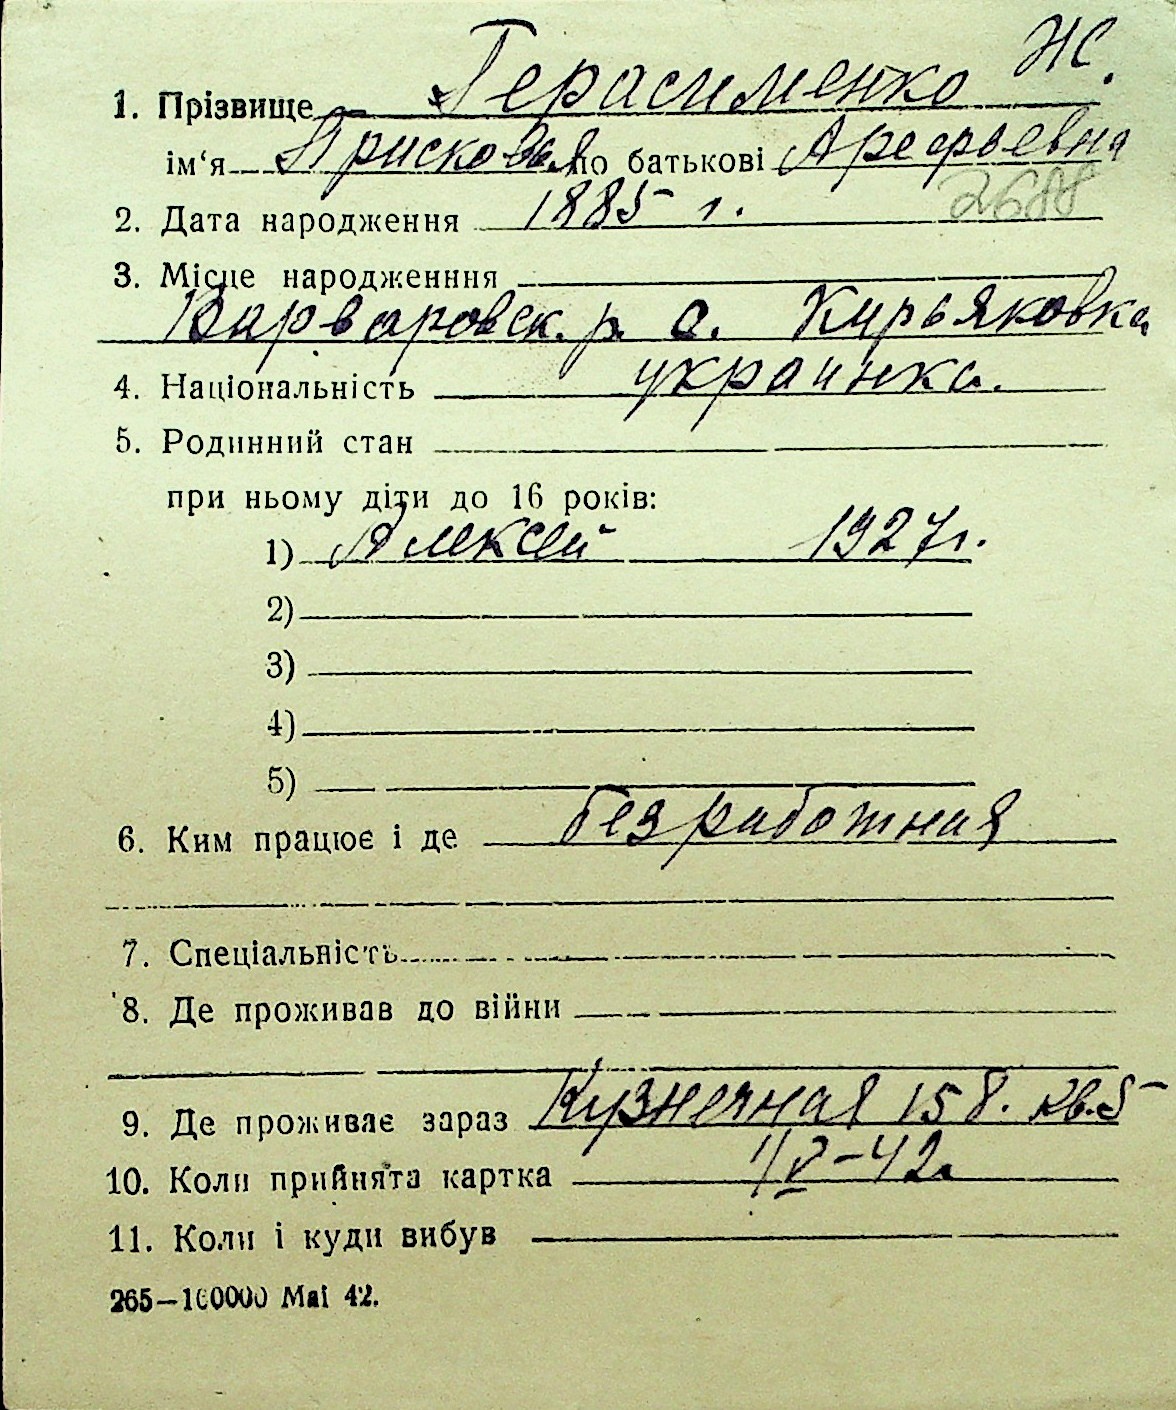 Ж.
1. Прізвище Герасименко
ім‘я Присковья по батькові Арефьевна
2. Дата народження 1885 г. 2688
3. Місце народженння
Варваровск. р. с. Кирьяковка
4. Національність украинка.
5. Родинний стан
при ньому діти до 16 років:
1) Алексей 1927г.
2)
3)
4)
5)
6. Ким працює і де безработная
7. Спеціальність
8. Де проживав до війни
9. Де проживає зараз Кузнечная 158. кв. 5
10. Коли прийнята картка 1/V-42.
11. Коли і куди вибув
265—100000 Mai 42.